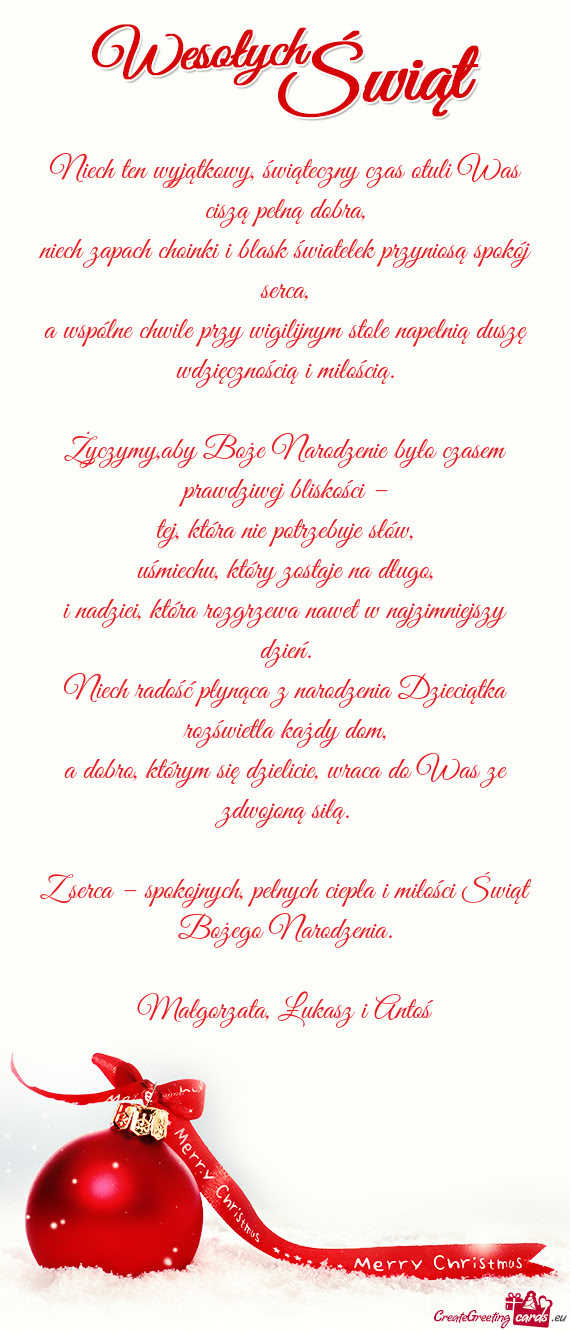 Wesołych Świąt
Niech ten wyjątkowy, świąteczny czas otuli Was
ciszą pełną dobra,
niech zapach choinki i blask światełek przyniosą spokój
serca,
a wspólne chwile przy wigilijnym stole napełnią duszę
wdzięcznością i miłością.
Życzymy,aby Boże Narodzenie było czasem
prawdziwej bliskości –
tej, która nie potrzebuje słów,
uśmiechu, który zostaje na długo,
i nadziei, która rozgrzewa nawet w najzimniejszy
dzień.
Niech radość płynąca z narodzenia Dzieciątka
rozświetla każdy dom,
a dobro, którym się dzielicie, wraca do Was ze
zdwojoną siłą.
Z serca – spokojnych, pełnych ciepła i miłości Świąt
Bożego Narodzenia.
Małgorzata, Łukasz i Antoś
Merry Christmas
Merry Christmas
CreateGreetingcards.eu